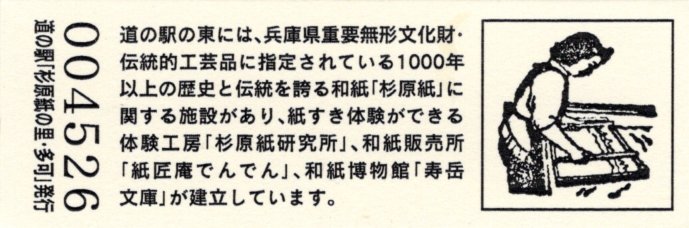 道の駅の東には、兵庫県重要無形文化財・
伝統的工芸品に指定されている1000年
以上の歴史と伝統を誇る和紙「杉原紙」に
関する施設があり、紙すき体験ができる
体験工房「杉原紙研究所」、和紙販売所
「紙匠庵でんでん」、和紙博物館「寿岳
文庫」が建立しています。
004526
道の駅「杉原紙の里・多可」発行